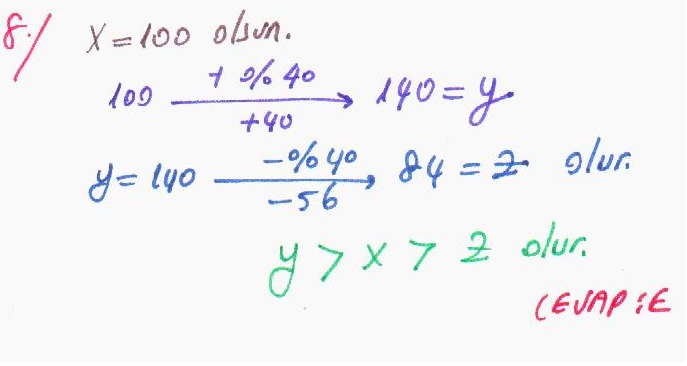 8-/ x=100 olsun.
100 + %40 +40 → 140=y
y=140 -%40 -56 → 84=z olur.
y > x > z olur.
CEVAP:E